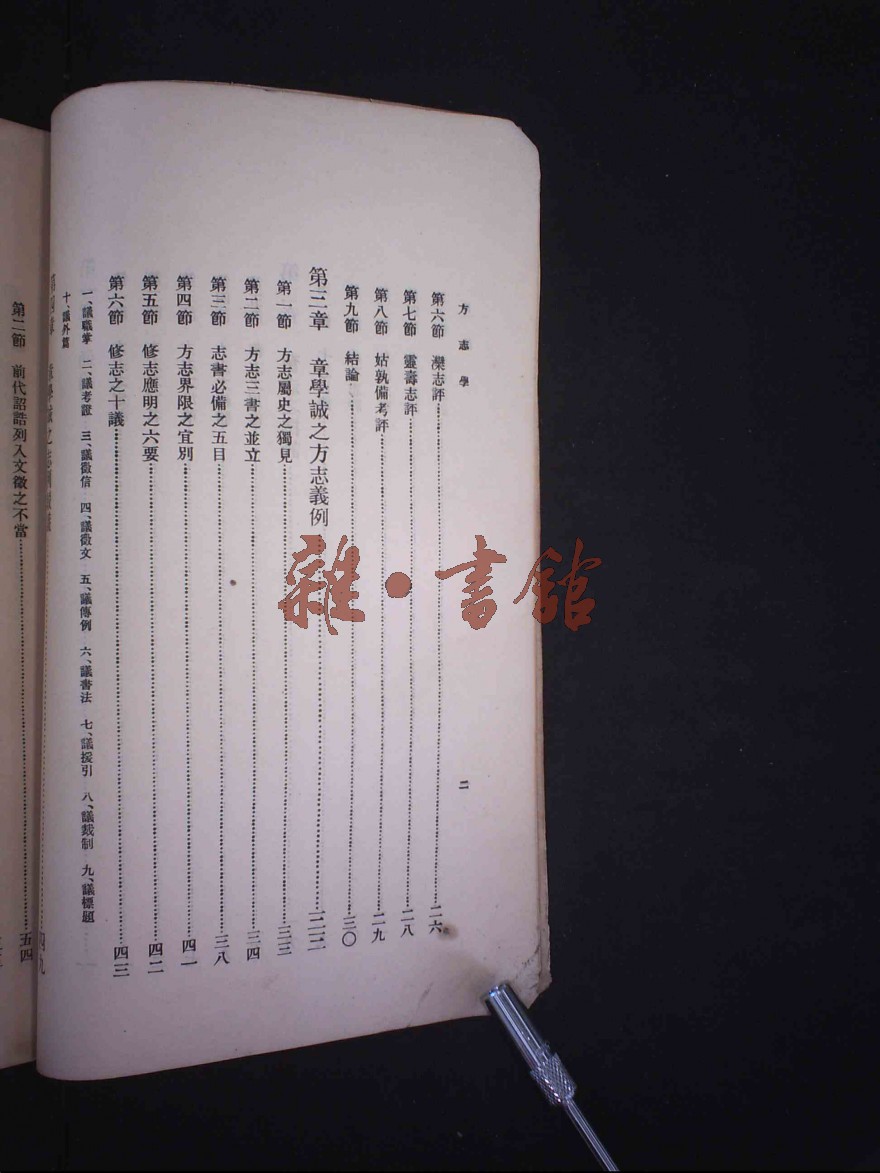 方志學 二
第六節 灤志評……二六
第七節 靈壽志評……二八
第八節 姑孰備考評……二九
第九節 結論……三〇
第三章 章學誠之方志義例……
第一節 方志屬史之獨見……三三
第二節 方志三書之並立……三四
第三節 志書必備之五目……三八
第四節 方志界限之宜別……四一
第五節 修志應明之六要……四二
第六節 修志之十議……四三
一、議職掌 二、議考證 三、議徵信 四、議徵文 五、議傳例 六、議書法 七、議援引 八、議裁制 九、議標題
十、議外篇
第四章 學誠之志……四九
第二節 前代詔誥列入文徵之不當……五四
雜·書館